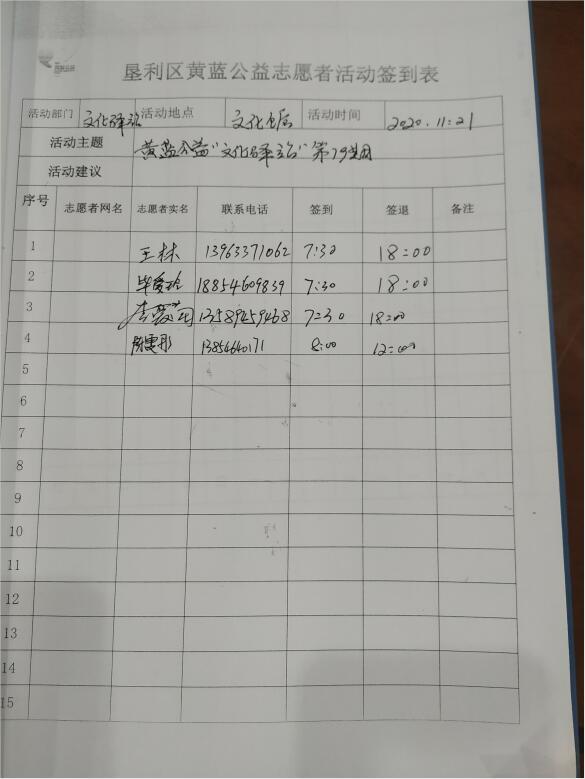 垦利区黄蓝公益志愿者活动签到表
活动部门 文化驿站 活动地点 文化书店 活动时间 2020.11.21
活动主题 黄蓝公益"文化驿站"第79期
活动建议
序号 志愿者网名 志愿者实名 联系电话 签到 签退 备注
1 王林 13963371062 7:30 18:00
2 毕爱玲 18854609839 7:30 18:00
3 李爱 13589459468 7:30 18:00
4 13854640171 8:00 12:00
5
6
7
8
9
10
11
12
13
14
15